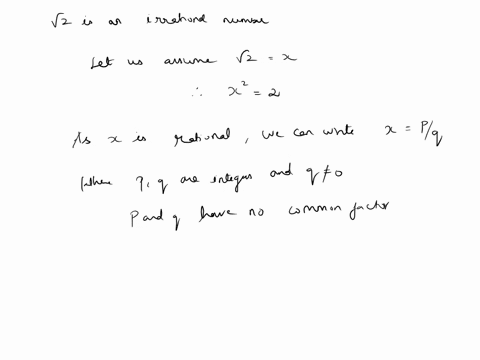 √2 is an irrational number
Let us assume √2 = x
∴ x² = 2
As x is rational, we can write x = P/q
Where P, q are integers and q ≠ 0
P and q have no common factor